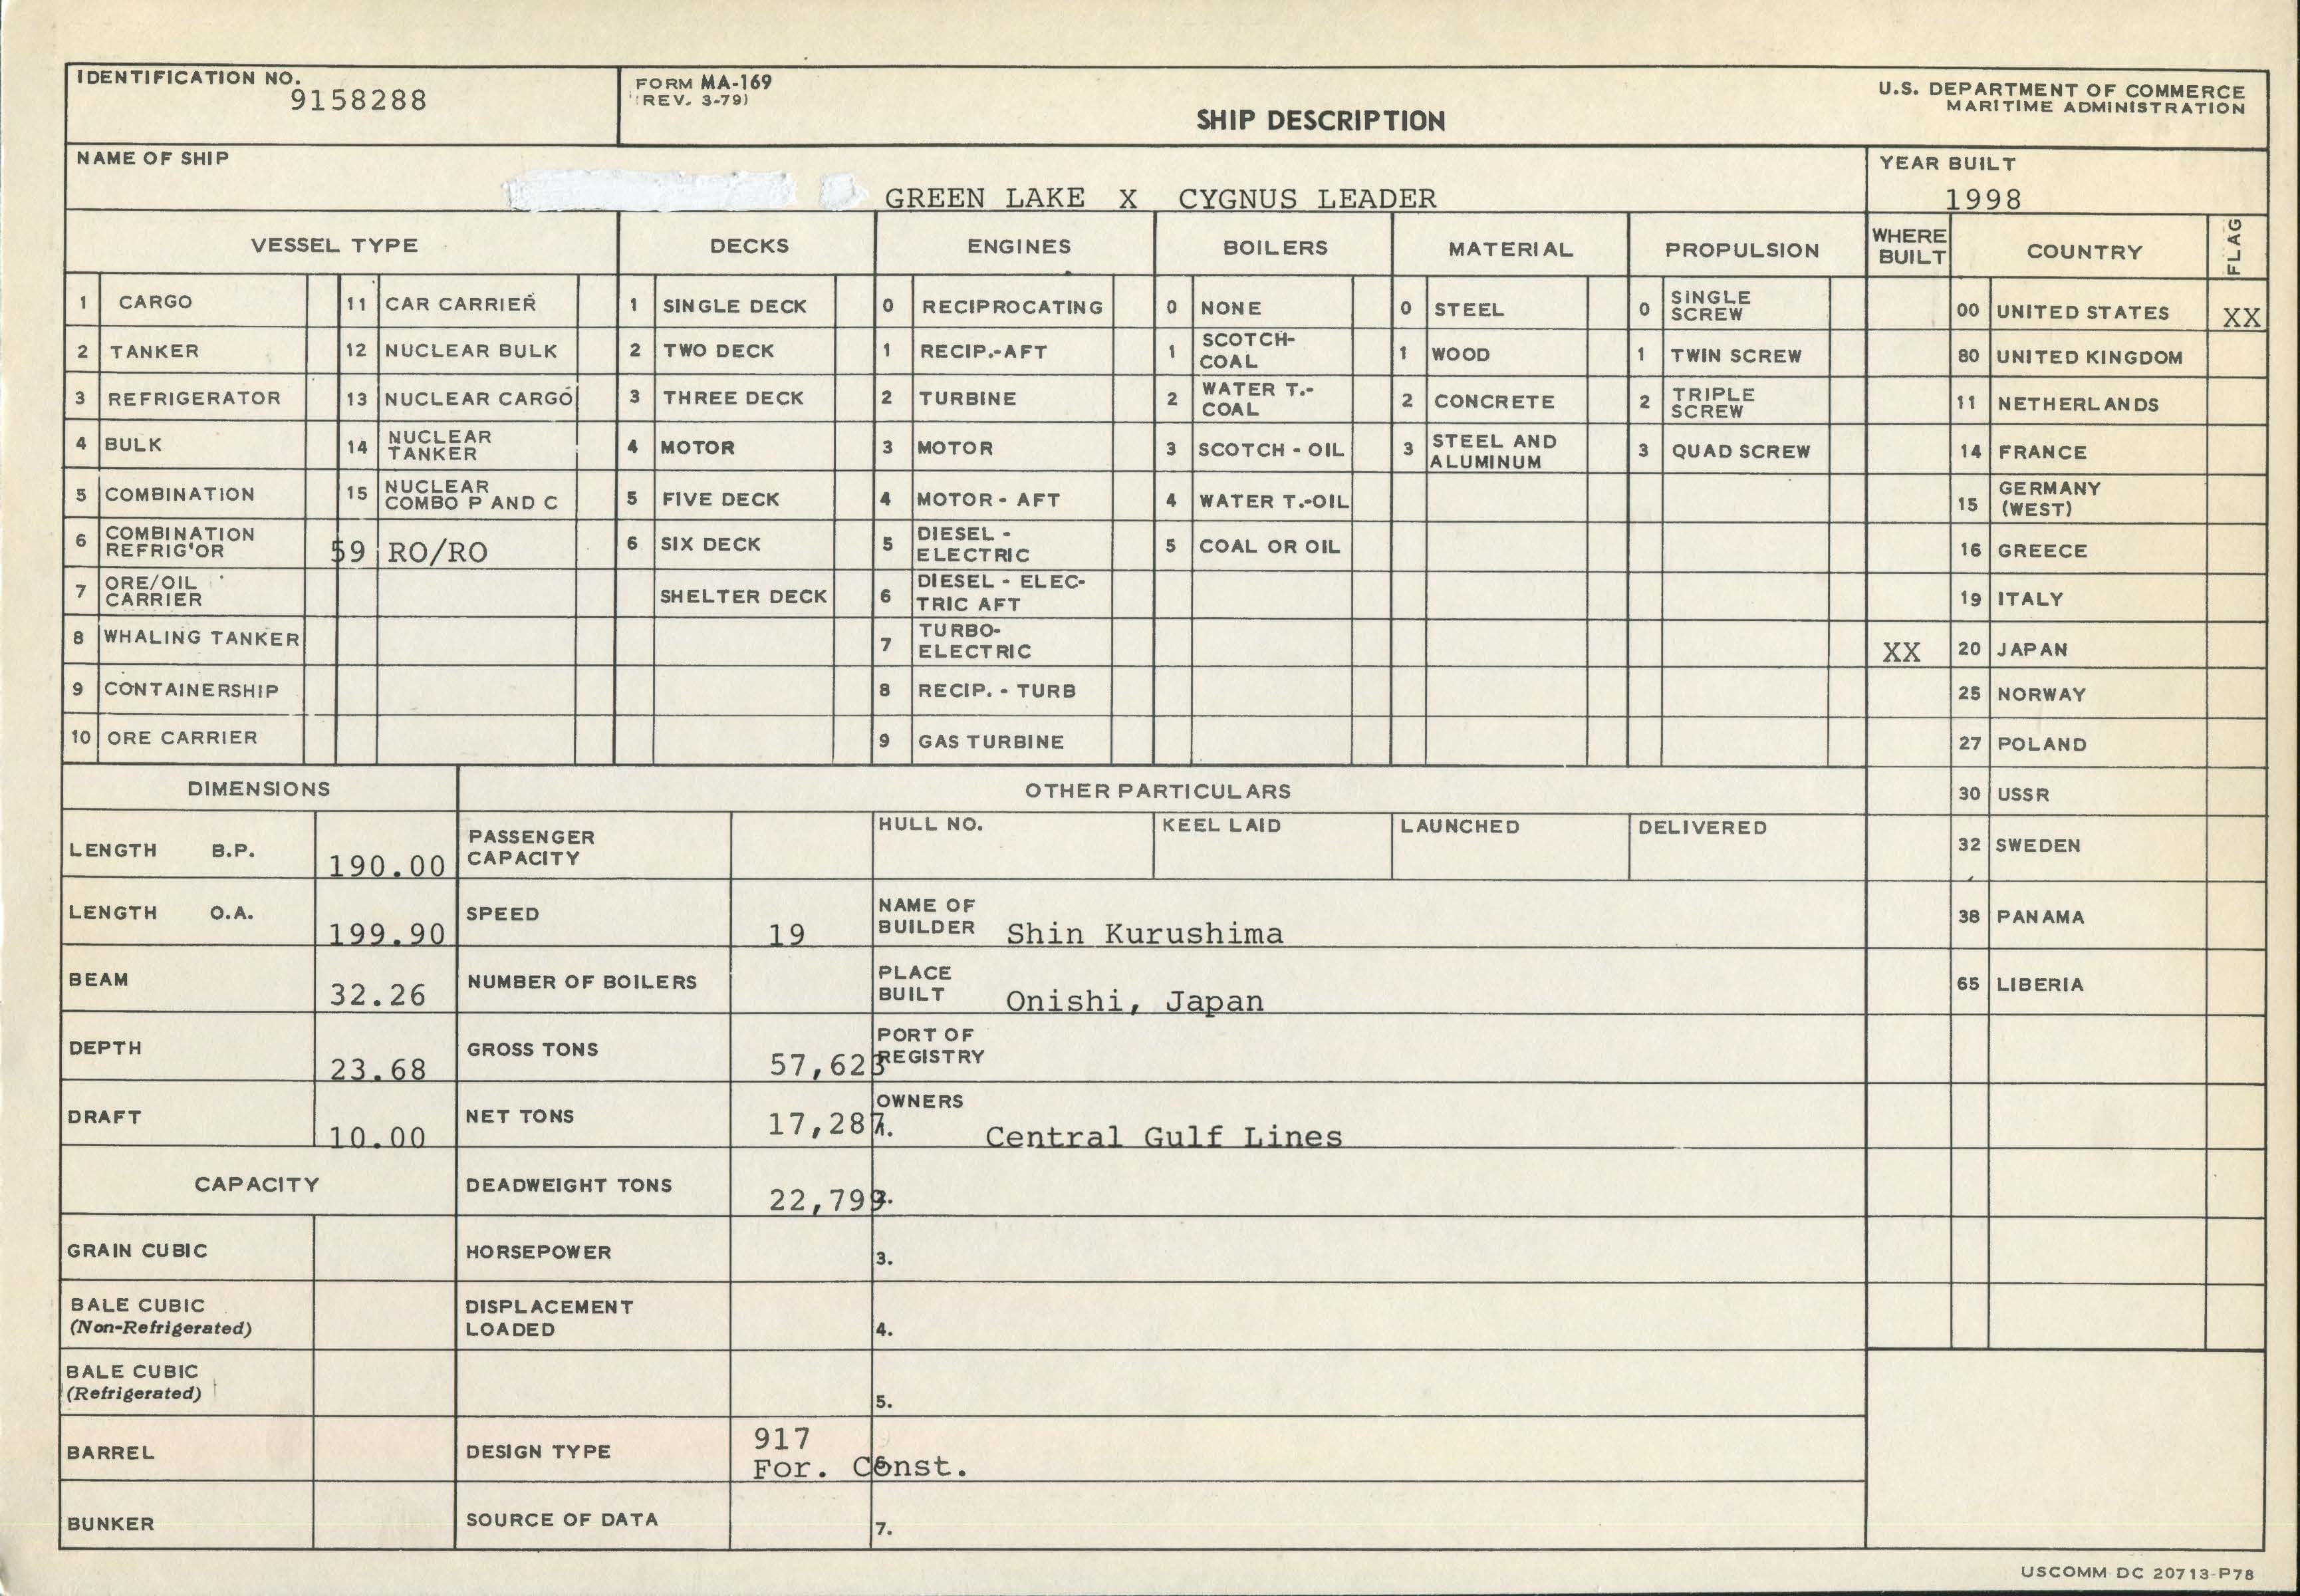 IDENTIFICATION NO.
9158288
FORM MA-169
(REV. 3-79)
SHIP DESCRIPTION
U.S. DEPARTMENT OF COMMERCE
MARITIME ADMINISTRATION
NAME OF SHIP
GREEN LAKE X CYGNUS LEADER
YEAR BUILT
1998
VESSEL TYPE DECKS ENGINES BOILERS MATERIAL PROPULSION WHERE BUILT COUNTRY FLAG
1 CARGO 11 CAR CARRIER 1 SINGLE DECK 0 RECIPROCATING 0 NONE 0 STEEL 0 SINGLE SCREW 00 UNITED STATES XX
2 TANKER 12 NUCLEAR BULK 2 TWO DECK 1 RECIP.-AFT 1 SCOTCH-COAL 1 WOOD 1 TWIN SCREW 80 UNITED KINGDOM
3 REFRIGERATOR 13 NUCLEAR CARGO 3 THREE DECK 2 TURBINE 2 WATER T.-COAL 2 CONCRETE 2 TRIPLE SCREW 11 NETHERLANDS
4 BULK 14 NUCLEAR TANKER 4 MOTOR 3 MOTOR 3 SCOTCH - OIL 3 STEEL AND ALUMINUM 3 QUAD SCREW 14 FRANCE
5 COMBINATION 15 NUCLEAR COMBO P AND C 5 FIVE DECK 4 MOTOR - AFT 4 WATER T.-OIL 15 GERMANY (WEST)
6 COMBINATION REFRIG'OR 59 RO/RO 6 SIX DECK 5 DIESEL - ELECTRIC 5 COAL OR OIL 16 GREECE
7 ORE/OIL CARRIER SHELTER DECK 6 DIESEL - ELEC-TRIC AFT 19 ITALY
8 WHALING TANKER 7 TURBO-ELECTRIC XX 20 JAPAN
9 CONTAINERSHIP 8 RECIP. - TURB 25 NORWAY
10 ORE CARRIER 9 GAS TURBINE 27 POLAND
DIMENSIONS OTHER PARTICULARS 30 USSR
LENGTH B.P. 190.00 PASSENGER CAPACITY HULL NO. KEEL LAID LAUNCHED DELIVERED 32 SWEDEN
LENGTH O.A. 199.90 SPEED 19 NAME OF BUILDER Shin Kurushima 38 PANAMA
BEAM 32.26 NUMBER OF BOILERS PLACE BUILT Onishi, Japan 65 LIBERIA
DEPTH 23.68 GROSS TONS 57,623 PORT OF REGISTRY
DRAFT 10.00 NET TONS 17,287 OWNERS 1. Central Gulf Lines
CAPACITY DEADWEIGHT TONS 22,799 2.
GRAIN CUBIC HORSEPOWER 3.
BALE CUBIC (Non-Refrigerated) DISPLACEMENT LOADED 4.
BALE CUBIC (Refrigerated) 5.
BARREL DESIGN TYPE 917 For. Const. 6.
BUNKER SOURCE OF DATA 7.
USCOMM DC 20713-P78